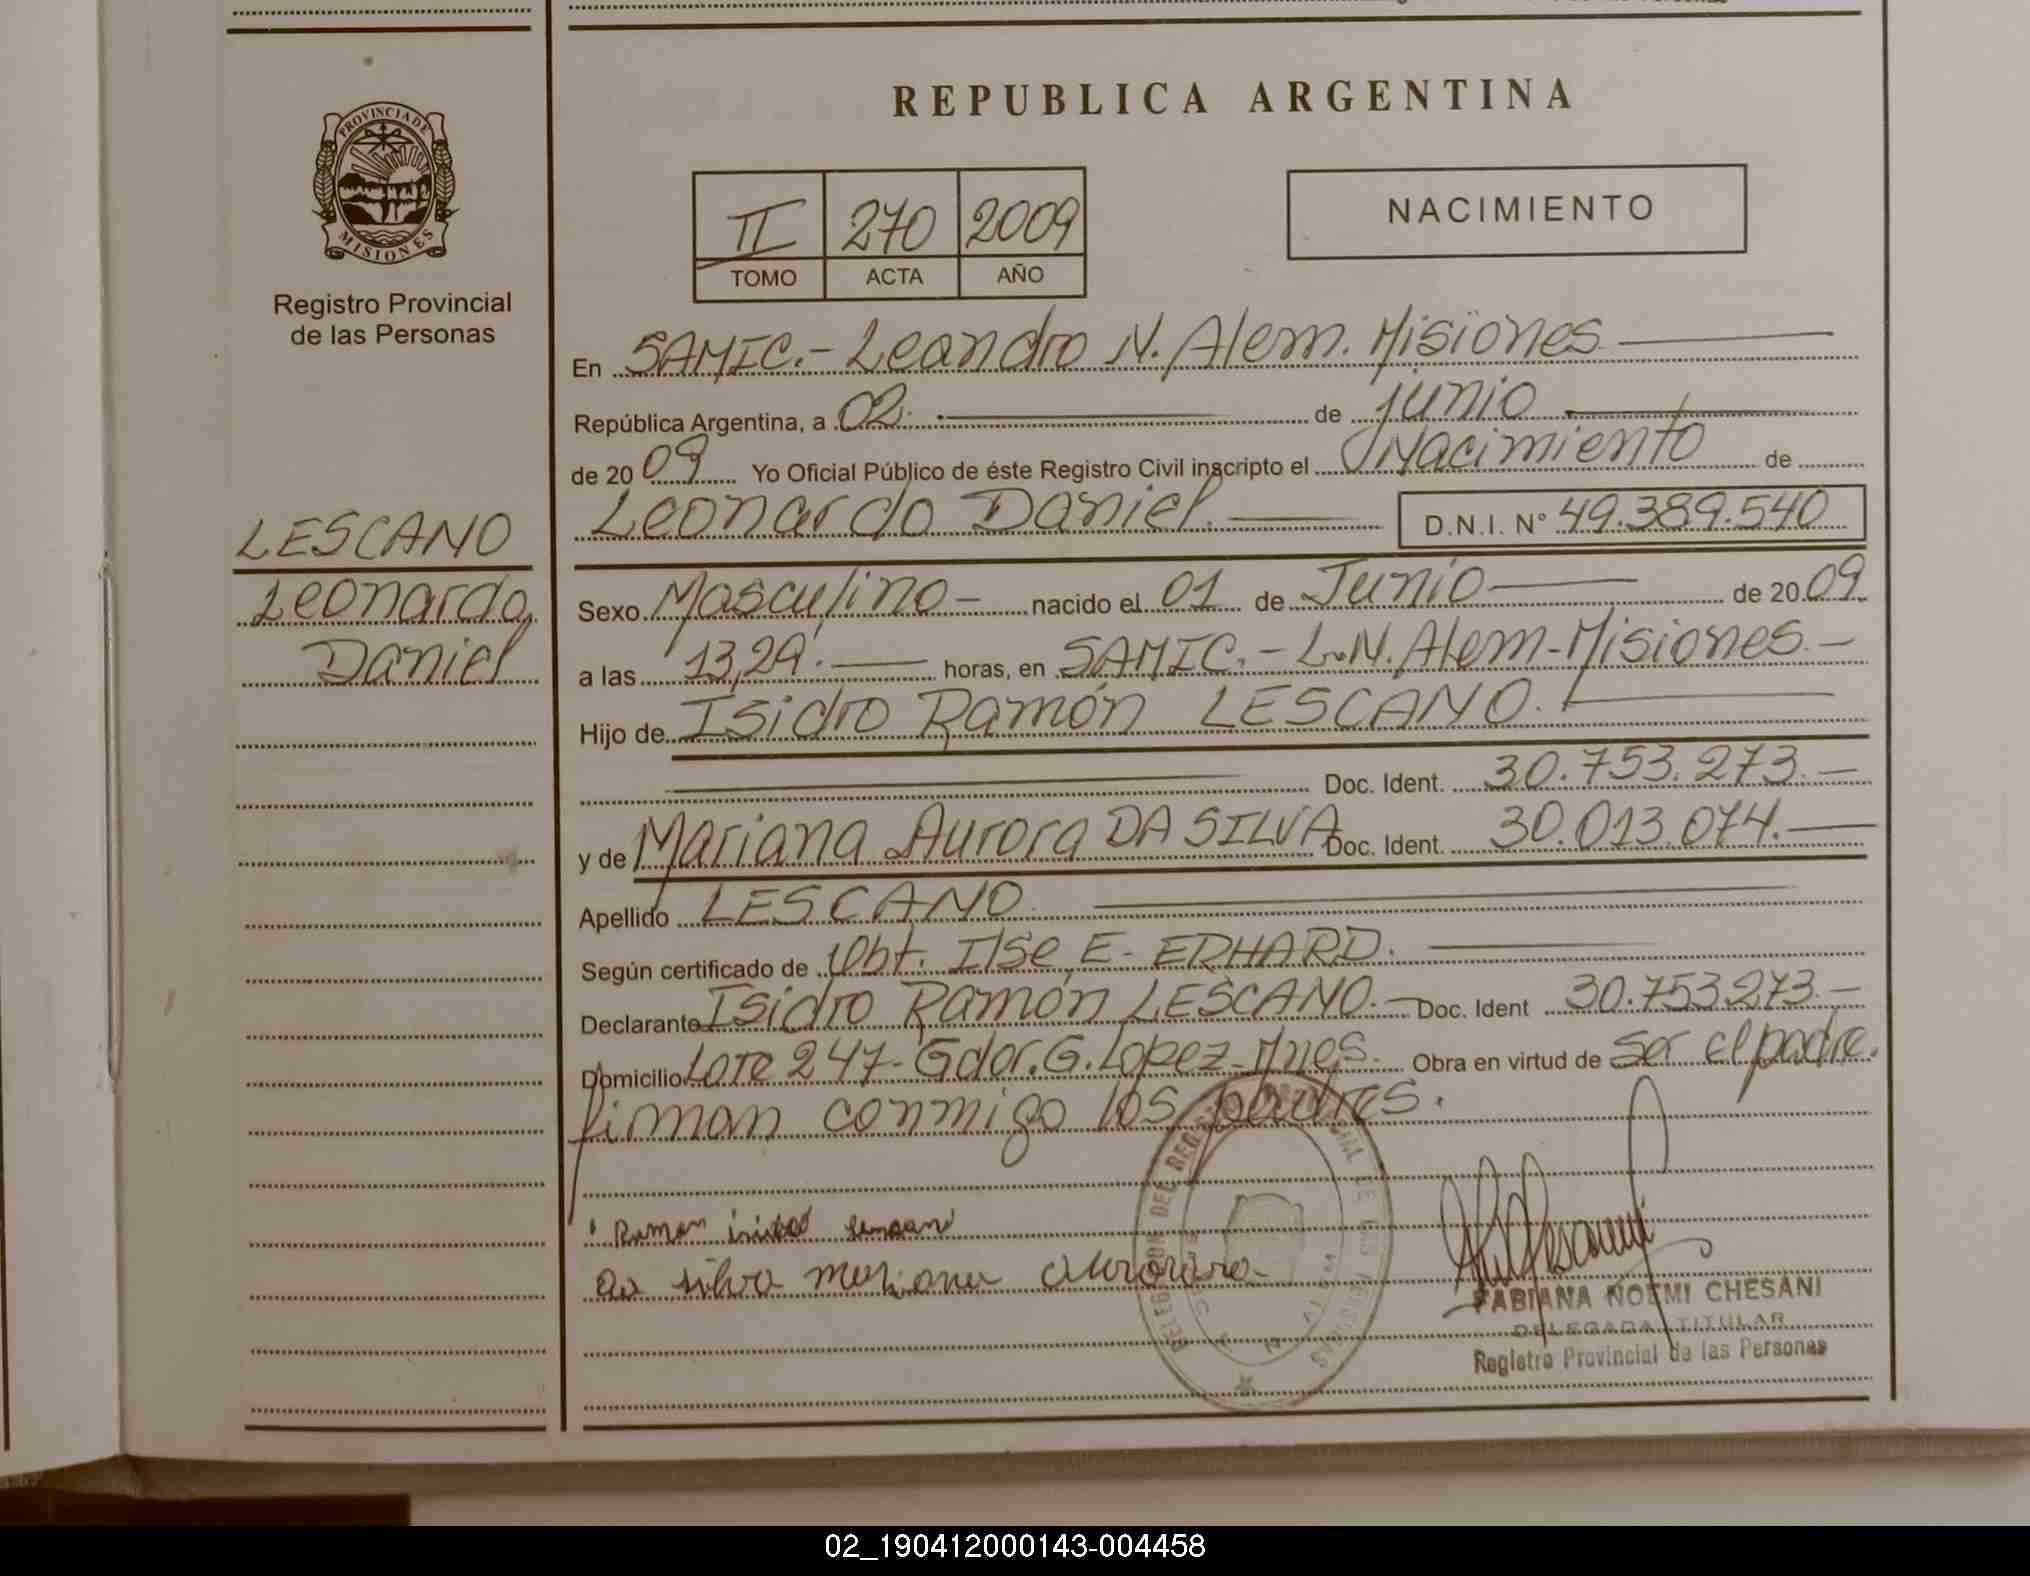 REPUBLICA ARGENTINA
PROVINCIA DE
MISIONES
Registro Provincial
de las Personas
II 270 2009
TOMO ACTA AÑO
NACIMIENTO
LESCANO
Leonardo
Daniel
En SAMIC.- Leandro N. Alem. Misiones
República Argentina, a 02. de junio
de 20 09 Yo Oficial Público de éste Registro Civil inscripto el Nacimiento de
Leonardo Daniel. D.N.I. N° 49.389.540
Sexo Masculino - nacido el 01 de Junio de 20 09
a las 13,29. horas, en SAMIC.- L.N. Alem-Misiones.-
Hijo de Isidro Ramón LESCANO.
Doc. Ident. 30.753.273.-
y de Mariana Aurora DA SILVA Doc. Ident. 30.013.074.
Apellido LESCANO
Según certificado de Obt. Ilse E. ERHARD.
Declarante Isidro Ramón LESCANO.- Doc. Ident 30.753.273.-
Domicilio Lote 247- Gdor. G. Lopez- Mnes. Obra en virtud de Ser el padre.
firman conmigo los padres.
Ramon
da silva mariana
DELEGACION DEL REGISTRO PROVINCIAL DE LAS PERSONAS
FABIANA NOEMI CHESANI
DELEGADA TITULAR
Registro Provincial de las Personas
02_190412000143-004458